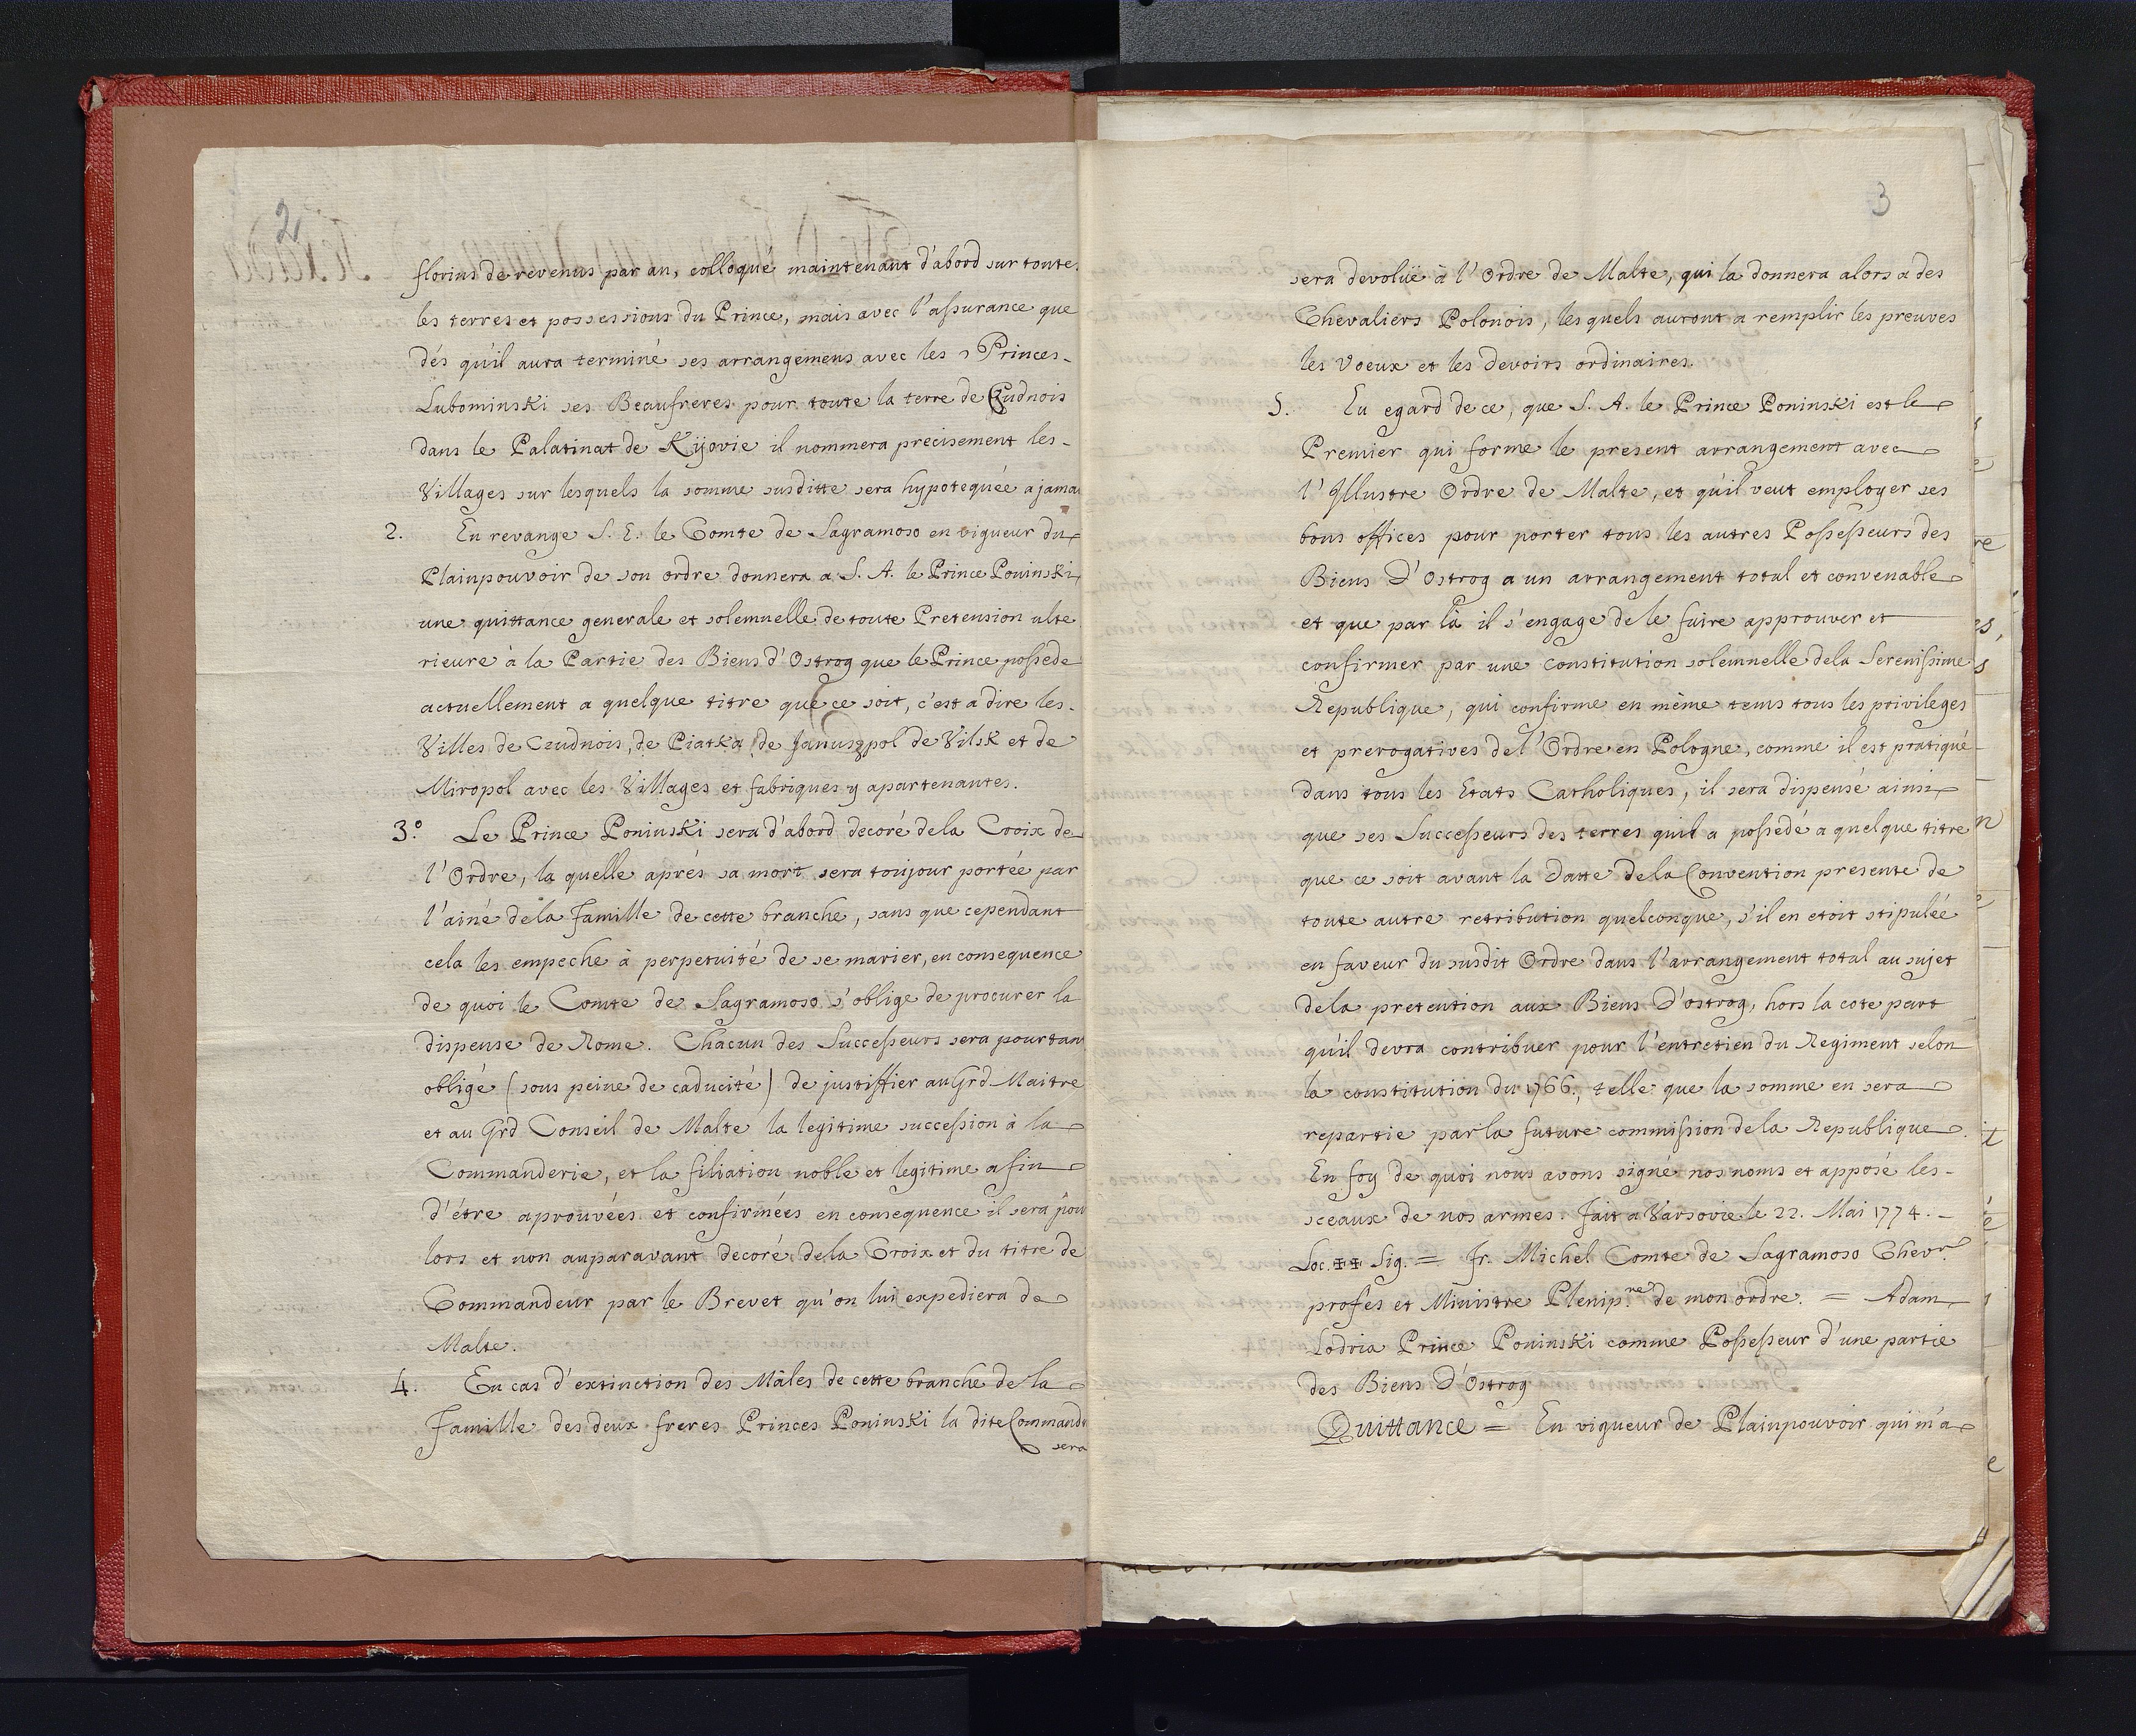 2
florins de revenus par an, colloqué maintenant d'abord sur toute
les terres et possessions du Prince, mais avec l'assurance que
dés qu'il aura terminé ses arrangemens avec les Princes-
Lubominski ses Beaufreres pour toute la terre de Cudnois
dans le Palatinat de Kijovie il nommera precisement les-
Villages sur lesquels la somme susditte sera hypotequée a jama
2. En revange S. E. le Comte de Sagramoso en vigueur du
Plainpouvoir de son ordre donnera a S. A. le Prince Poninski
une quittance generale et solemnelle de toute Pretension ulte
rieure à la Partie des Biens d'Ostrog que le Prince possede
actuellement a quelque titre que ce soit, c'est a dire les-
Villes de Czudnois, de Piatka, de Januszpol de Vilsk et de
Miropol avec les Villages et fabriques y apartenantes.
3.º Le Prince Poninski sera d'abord decoré dela Croix de
l'Ordre, la quelle aprés sa mort sera toujour portée par
l'ainé dela Famille de cette branche, sans que cependant
cela les empeche à perpetuité de se marier, en consequence
de quoi le Comte de Sagramoso s'oblige de procurer la
dispense de Rome. Chacun des Successeurs sera pourtan
obligé (sous peine de caducité) de justiffier au Grd Maitre
et au Grd Conseil de Malte la legitime succession à la
Commanderie, et la filiation noble et legitime afin
d'étre aprouvées et confirmées en consequence il sera pou
lors et non auparavant decoré dela Croix et du titre de
Commandeur par le Brevet qu'on lui expediera de
Malte.
4. En cas d'extinction des Mâles de cette branche de la
Famille des deux freres Princes Poninski la dite Command
sera
3
sera devoluë à l'Ordre de Malte, qui la donnera alors a des
Chevaliers Polonois, lesquels auront a remplir les preuves
les Voeux et les devoirs ordinaires.
5. Eu egard de ce, que S. A. le Prince Poninski est le
Premier qui forme le present arrangement avec
l'Illustre Ordre de Malte, et qu'il veut employer ses
bons offices pour porter tous les autres Possesseurs des
Biens D'Ostrog a un arrangement total et convenable
et que par là il s'engage de le faire approuver et
confirmer par une constitution solemnelle dela Serenissime
Republique, qui confirme en même tems tous les privileges
et prerogatives del'Ordre en Pologne, comme il est pratiqué
dans tous les Etats Catholiques, il sera dispensé ainsi
que ses Successeurs des terres quil a possedé a quelque titre
que ce soit avant la Datte dela Convention presente de
toute autre retribution quelconque, s'il en etoit stipulée
en faveur du susdit Ordre dans l'arrangement total au sujet
dela pretention aux Biens D'ostrog, hors la cote part
qu'il devra contribuer pour l'entretien du Regiment selon
la constitution du 1766., telle que la somme en sera
repartie par la future commission dela Republique.
En foy de quoi nous avons signé nos noms et apposé les-
sceaux de nos armes. Fait a Varsovie le 22. Mai 1774. -
Loc. ‡‡ Sig. = Fr. Michel Comte de Sagramoso Chevr.
profes et Ministre Plenip.re de mon ordre. = Adam
Lodzia Prince Poninski comme Possesseur d'une partie
des Biens D'Ostrog
Quittance = En vigueur de Plainpouvoir qui m'a